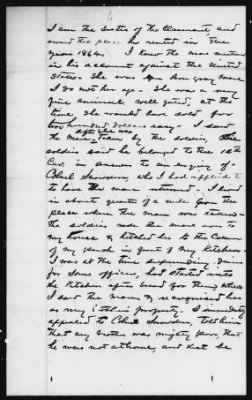 I am the sister of the Claimant and
owned the place he rented in the
year 1864. I knew the mare mentioned
in his account against the United
States. She was an iron gray mare
I do not her age. She was a very
fine animal well gaited, at the
time, she would have sold for
two hundred dollars easy. I saw
the mare after she was taken by the soldier, the
soldier said he belonged to the 10th
Cav. in answer to an enquiry of
Col who I had applied to
to have the mare returned. I lived
in about quarter of a mile from the
place where the mare was
the soldier rode the mare on to
my house & hitched her to the Column
of my porch in front of my Kitchen.
I was at the time superintending dinner
for some officers, had started into
the Kitchen after bread for them, when
I saw the mare & recognised her
as my brothers property. I immediately
appealed to Col telling him
that my brother was mighty poor, that
he was not at home, and that he